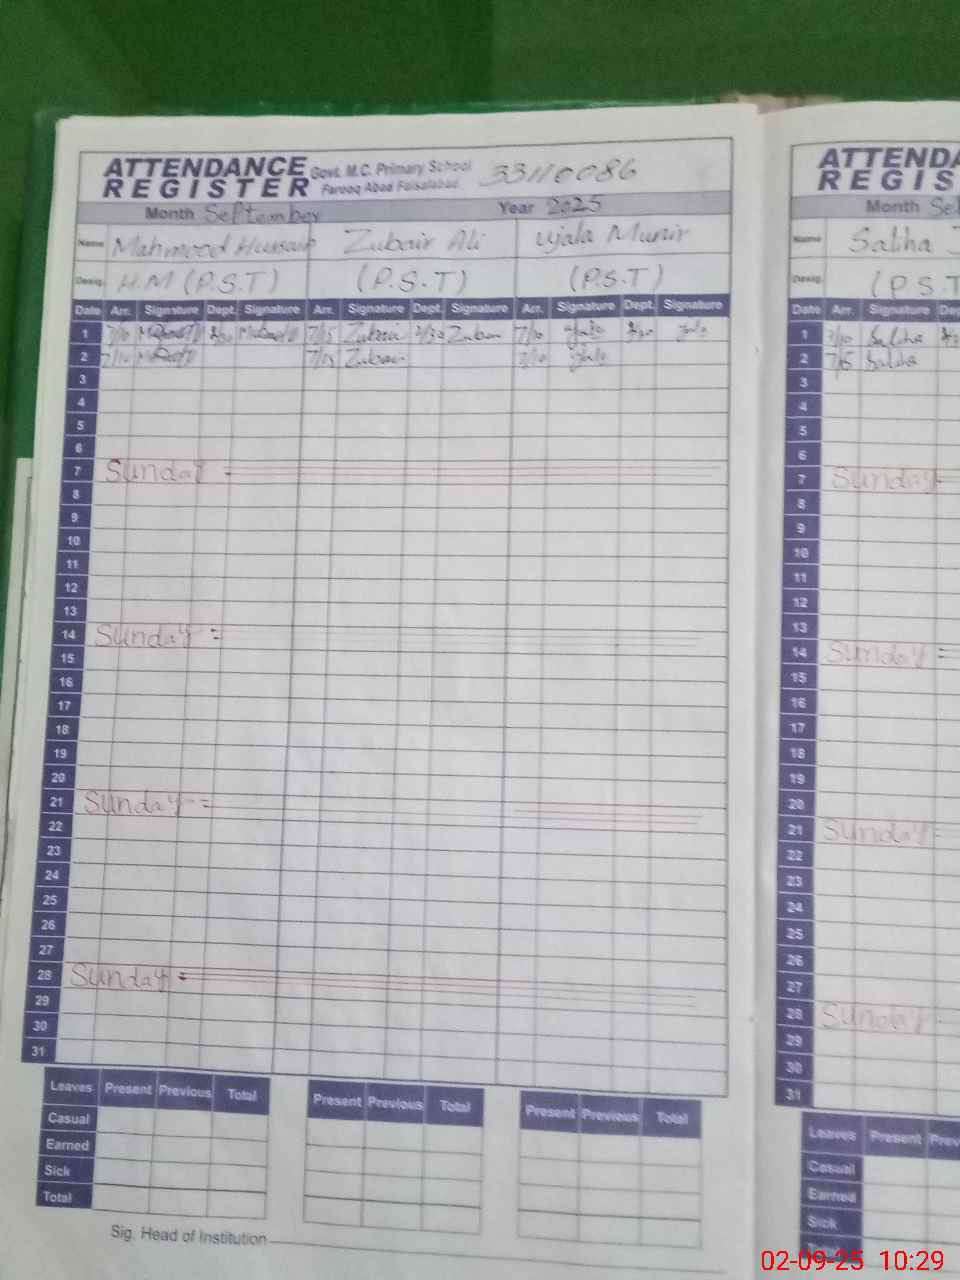 ATTENDANCE REGISTER Govt. M.C. Primary School Farooq Abad Faisalabad. 33110086
Month September Year 2025
Name Mahmood Hussain Zubair Ali Ujala Munir
Desig. H.M (P.S.T) (P.S.T) (P.S.T)
Date Arr. Signature Dept. Signature Arr. Signature Dept. Signature Arr. Signature Dept. Signature
1 7/10 7/15 Zubair 7/10
2 7/10 7/15 Zubair 7/10
3
4
5
6
7 Sunday
8
9
10
11
12
13
14 Sunday
15
16
17
18
19
20
21 Sunday
22
23
24
25
26
27
28 Sunday
29
30
31
Leaves Present Previous Total Present Previous Total Present Previous Total
Casual
Earned
Sick
Total
Sig. Head of Institution
ATTENDA
REGIS
Month Se
Name Saliha
Desig. (P.S.T
Date Arr. Signature De
1 7/10 Saliha
2 7/15 Saliha
3
4
5
6
7 Sunday
8
9
10
11
12
13
14 Sunday
15
16
17
18
19
20
21 Sunday
22
23
24
25
26
27
28 Sunday
29
30
31
Leaves Present Prev
Casual
Earned
Sick
02-09-25 10:29